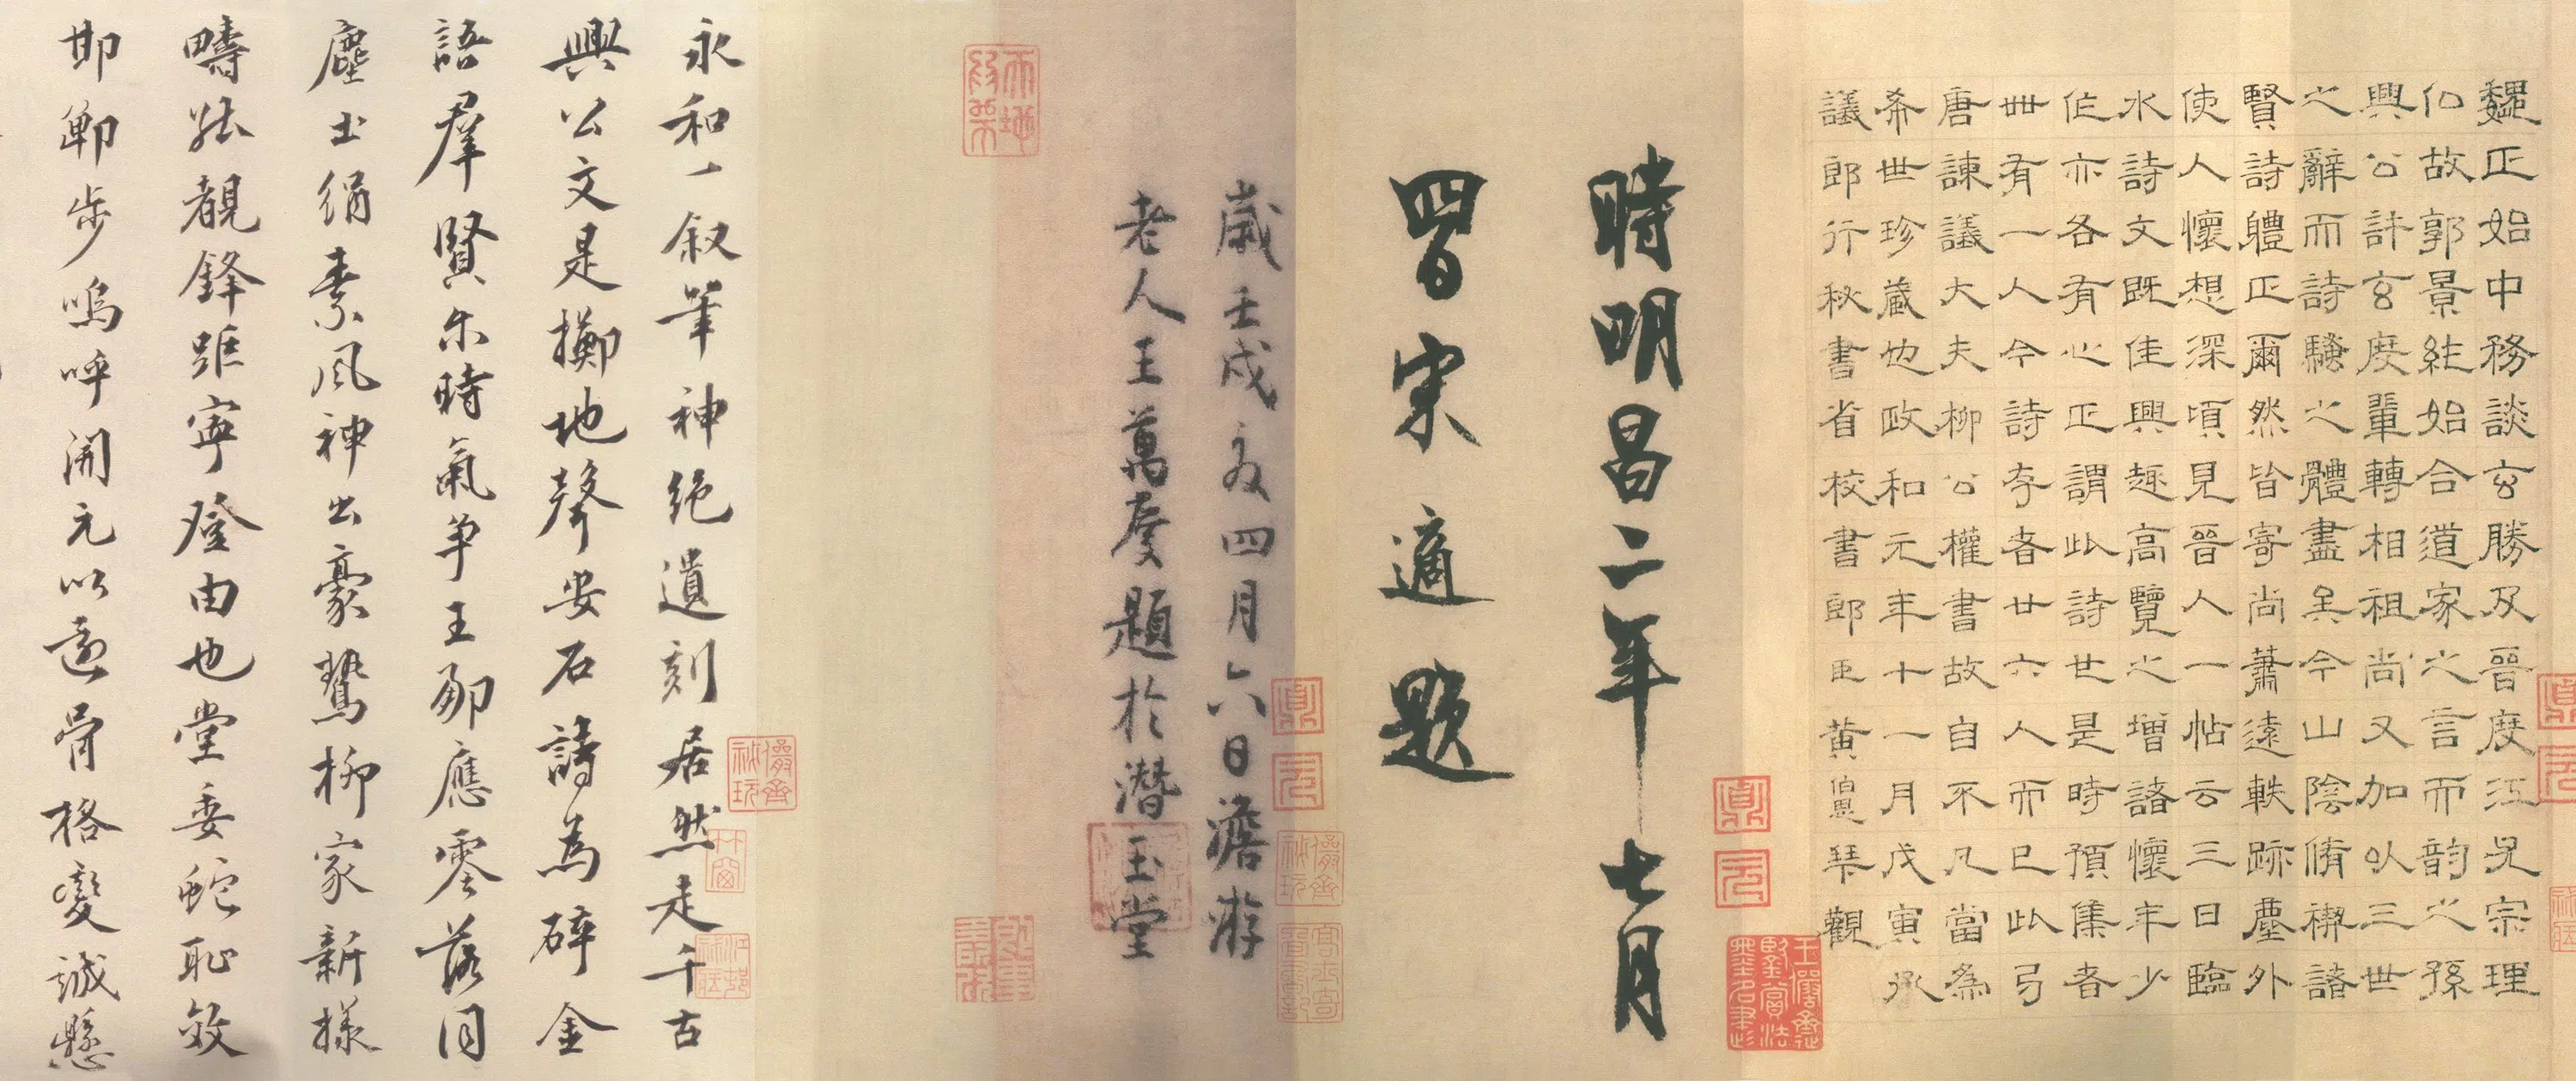 魏正始中務談玄勝及晉度江尤宗理
仏故郭景純始合道家之言而韵之孫
興公許玄度輩轉相祖尚又加以三世
之辭而詩騷之體盡矣今山陰脩禊諸
賢詩體正爾然皆寄尚蕭遠軼跡塵外
使人懷想深頃見晉人一帖云三日臨
水詩文既佳興趣高覽之增諸懷年少
作亦各有心正謂此詩也是時預集者
丗有一人今詩存者廿六人而已此
唐諫議大夫柳公權書故自不凡當為
希世珍藏也政和元年十一月戊寅承
議郎行秘書省校書郎臣黃伯思觀
時明昌二年七月
四日宋適題
歲壬戌夏四月六日澹游
老人王萬慶題於潛玉堂
永和一叙筆神絕遺刻居然走千古
興公文是擲地聲安石詩為碎金
語羣賢尔時氣爭王應零落同
塵土絹素風神出豪鷙柳家新樣
疇覩鋒距寧登由也堂委蛇恥效
邯鄲步嗚呼開元以還骨格變誠懸